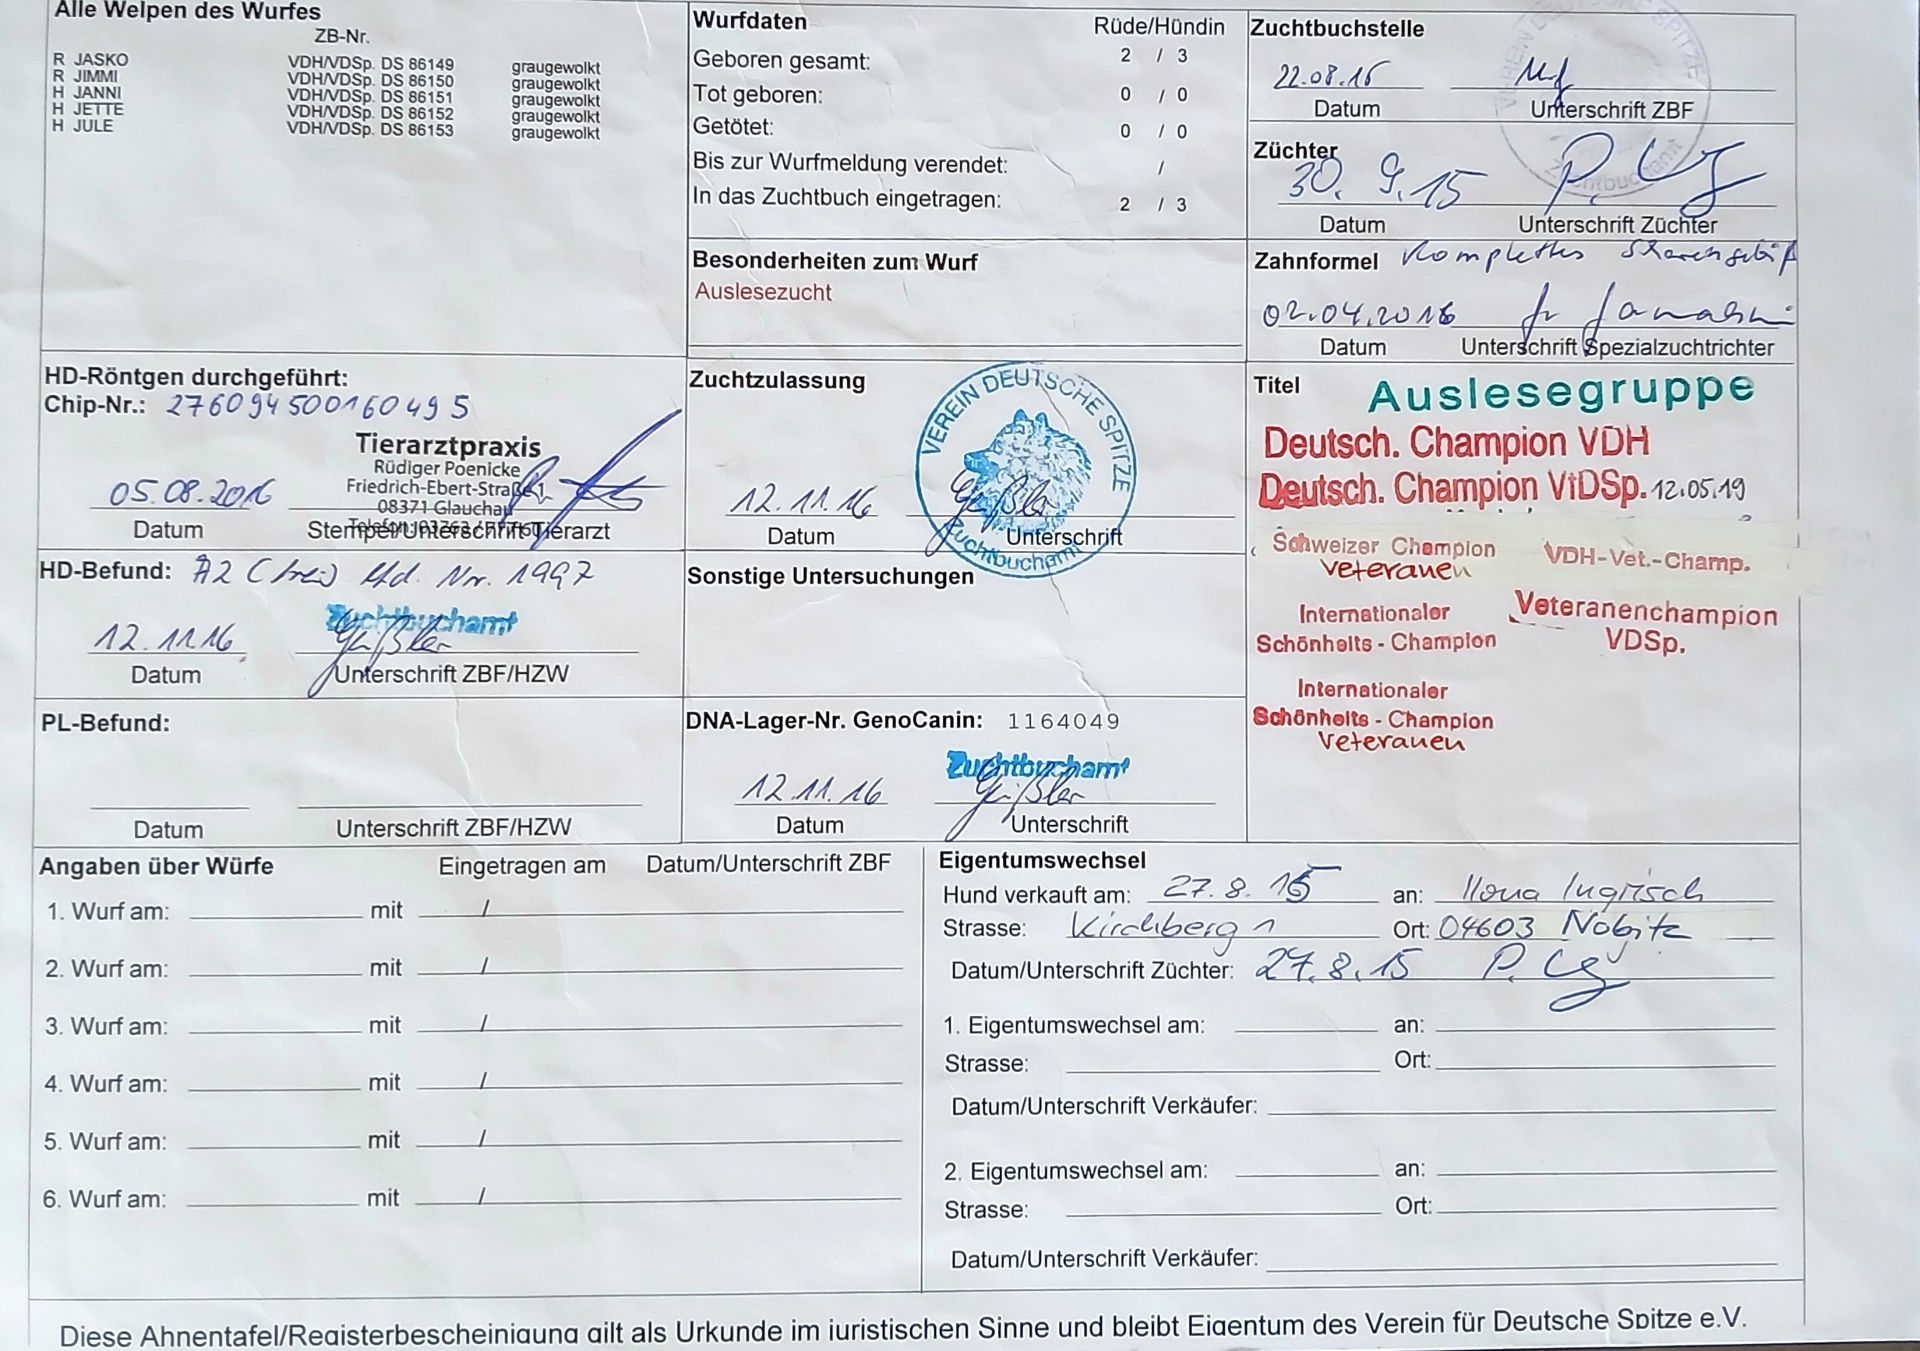 Alle Welpen des Wurfes
ZB-Nr.
R JASKO VDH/VDSp. DS 86149 graugewolkt
R JIMMI VDH/VDSp. DS 86150 graugewolkt
H JANNI VDH/VDSp. DS 86151 graugewolkt
H JETTE VDH/VDSp. DS 86152 graugewolkt
H JULE VDH/VDSp. DS 86153 graugewolkt
Wurfdaten Rüde/Hündin
Geboren gesamt: 2 / 3
Tot geboren: 0 / 0
Getötet: 0 / 0
Bis zur Wurfmeldung verendet: /
In das Zuchtbuch eingetragen: 2 / 3
Zuchtbuchstelle
22.08.15
Datum Unterschrift ZBF
VEREIN DEUTSCHE SPITZE
Zuchtbuchamt
Züchter
30.9.15
Datum Unterschrift Züchter
Besonderheiten zum Wurf
Auslesezucht
Zahnformel Komplettes Scherengebiß
02.04.2016
Datum Unterschrift Spezialzuchtrichter
HD-Röntgen durchgeführt:
Chip-Nr.: 276094500160495
Tierarztpraxis
Rüdiger Poenicke
Friedrich-Ebert-Straße 1
08371 Glauchau
05.08.2016
Datum Stempel/Unterschrift Tierarzt
Zuchtzulassung
VEREIN DEUTSCHE SPITZE
Zuchtbuchamt
12.11.16 Geißler
Datum Unterschrift
Titel
Auslesegruppe
Deutsch. Champion VDH
Deutsch. Champion VfDSp. 12.05.19
Schweizer Champion
Veteranen
VDH-Vet.-Champ.
Internationaler
Schönheits-Champion
Veteranenchampion
VDSp.
Internationaler
Schönheits-Champion
Veteranen
HD-Befund: A2 (frei) lfd. Nr. 1997
Zuchtbuchamt
12.11.16 Geißler
Datum Unterschrift ZBF/HZW
Sonstige Untersuchungen
PL-Befund:
Datum Unterschrift ZBF/HZW
DNA-Lager-Nr. GenoCanin: 1164049
Zuchtbuchamt
12.11.16 Geißler
Datum Unterschrift
Angaben über Würfe Eingetragen am Datum/Unterschrift ZBF
1. Wurf am: mit /
2. Wurf am: mit /
3. Wurf am: mit /
4. Wurf am: mit /
5. Wurf am: mit /
6. Wurf am: mit /
Eigentumswechsel
Hund verkauft am: 27.8.15 an: Ilona Ingrisch
Strasse: Kirchberg 1 Ort: 04603 Nobitz
Datum/Unterschrift Züchter: 27.8.15
1. Eigentumswechsel am: an:
Strasse: Ort:
Datum/Unterschrift Verkäufer:
2. Eigentumswechsel am: an:
Strasse: Ort:
Datum/Unterschrift Verkäufer:
Diese Ahnentafel/Registerbescheinigung gilt als Urkunde im juristischen Sinne und bleibt Eigentum des Verein für Deutsche Spitze e.V.